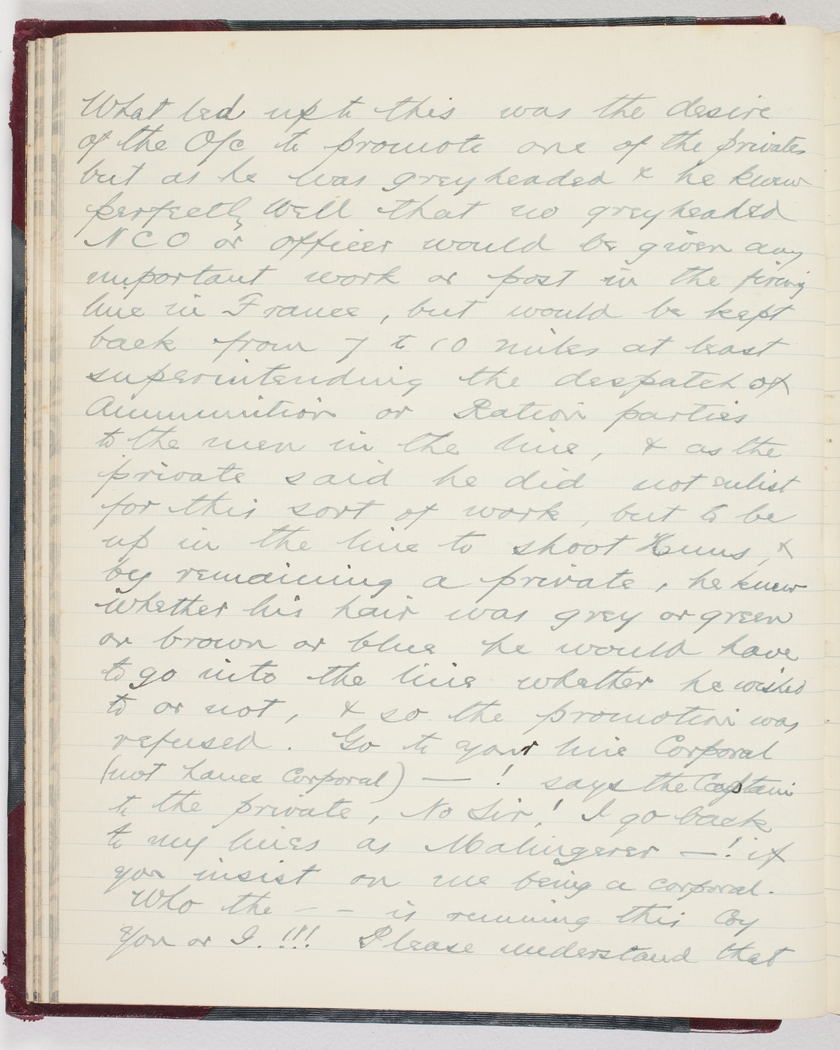 What led up to this was the desire
of the O/c to promote one of the privates
but as he was greyheaded & he knew
perfectly well that no greyheaded
NCO or officer would be given any
important work or post in the firing
line in France, but would be kept
back from 7 to 10 miles at least
superintending the despatch of
Ammunition or Ration parties
to the men in the line, & as the
private said he did not enlist
for this sort of work, but to be
up in the line to shoot Huns, &
by remaining a private, he knew
whether his hair was grey or green
or brown or blue he would have
to go into the line whether he wished
to or not, & so the promotion was
refused. Go to your line Corporal
(not Lance Corporal) — ! says the Captain
to the private, No Sir! I go back
to my lines as Malingerer — ! if
you insist on me being a corporal.
Who the – – is running this Coy
You or I. !!! Please understand that